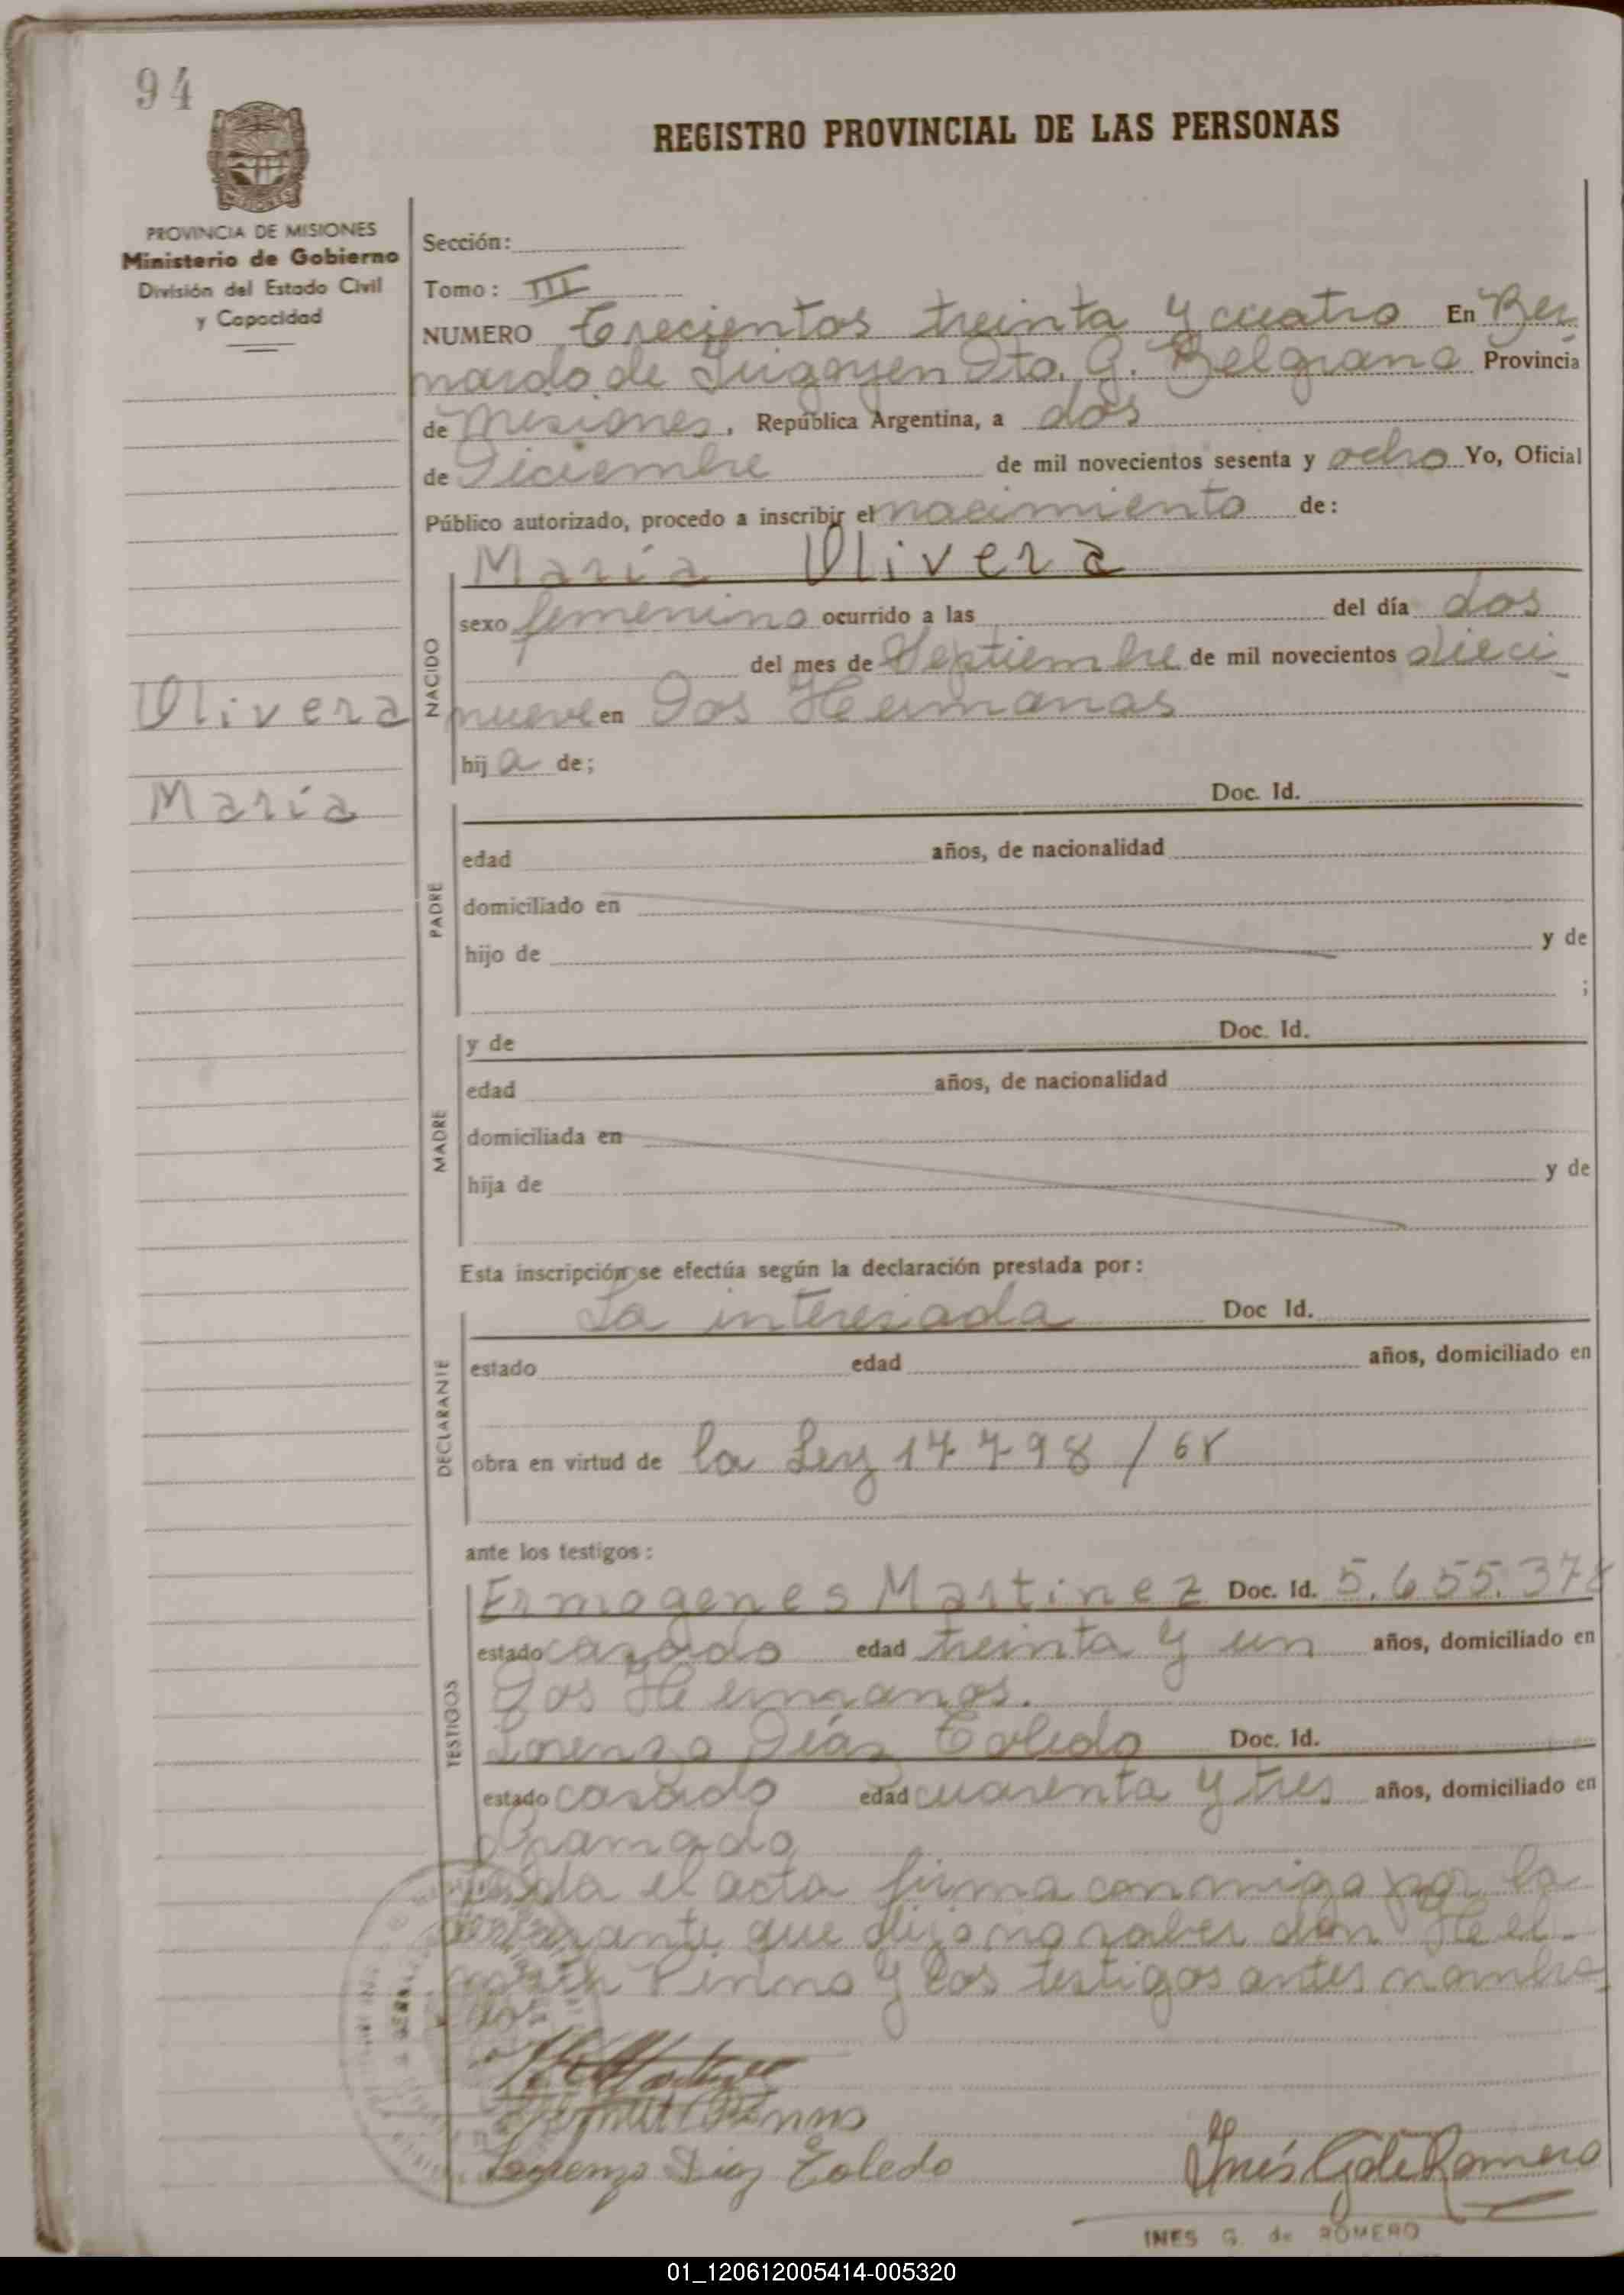 94
REGISTRO PROVINCIAL DE LAS PERSONAS
PROVINCIA DE MISIONES
Ministerio de Gobierno
División del Estado Civil
y Capacidad
Sección:
Tomo: III
NUMERO Trecientos treinta y cuatro En Ber
nardo de Irigoyen Dto. G. Belgrano Provincia
de Misiones, República Argentina, a dos
de Diciembre de mil novecientos sesenta y ocho Yo, Oficial
Público autorizado, procedo a inscribir el nacimiento de:
María Olivera
sexo femenino ocurrido a las del día dos
del mes de Septiembre de mil novecientos dieci
nueve en Dos Hermanas
hija de;
NACIDO
Olivera
María
Doc. Id.
edad años, de nacionalidad
domiciliado en
hijo de y de
;
PADRE
y de Doc. Id.
edad años, de nacionalidad
domiciliada en
hija de y de
MADRE
Esta inscripción se efectúa según la declaración prestada por:
La interesada Doc Id.
estado edad años, domiciliado en
obra en virtud de la Ley 17798/68
DECLARANTE
ante los testigos:
Ermogenes Martinez Doc. Id. 5.655.378
estado casado edad treinta y un años, domiciliado en
Dos Hermanas.
Lorenzo Díaz Toledo Doc. Id.
estado casado edad cuarenta y tres años, domiciliado en
TESTIGOS
el acta firma conmigo por la
que dijo no saber don Hel-
Penno y los testigos antes nombra
dos
Penno
Lorenzo Diaz Toledo
Inés G de Romero
INES G. de ROMERO
01_120612005414-005320